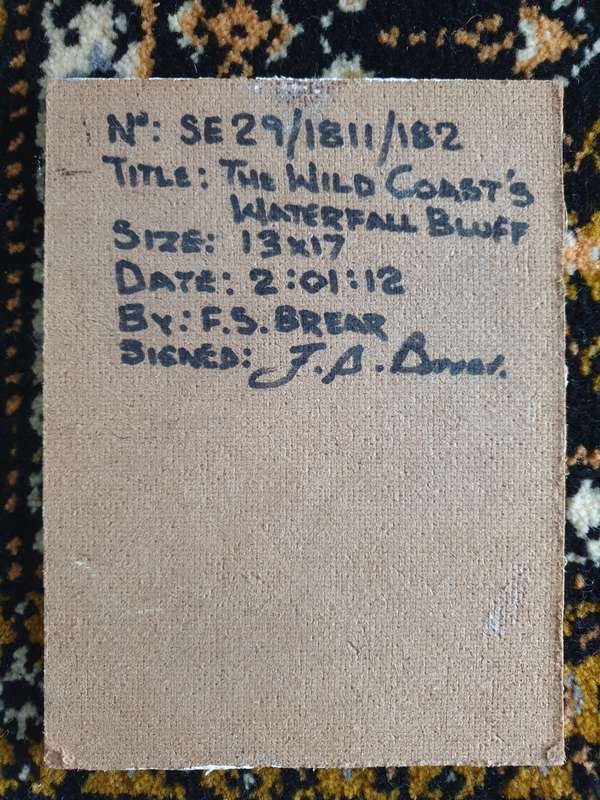 Nº: SE29/1811/182
TITLE: THE WILD COAST'S
WATERFALL BLUFF
SIZE: 13x17
DATE: 2:01:12
BY: F.S. BREAR
SIGNED: F.S. Brear.